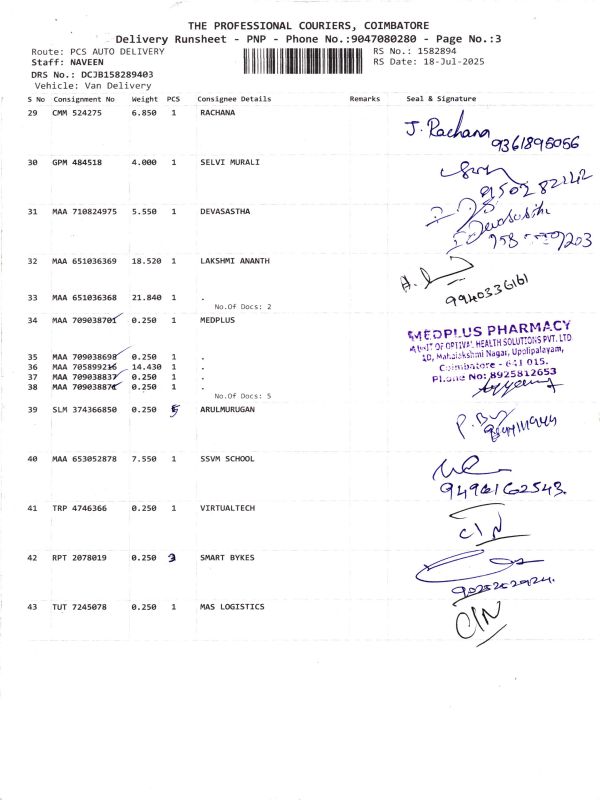 THE PROFESSIONAL COURIERS, COIMBATORE
Delivery Runsheet - PNP - Phone No.:9047080280 - Page No.:3
Route: PCS AUTO DELIVERY
RS No.: 1582894
Staff: NAVEEN
RS Date: 18-Jul-2025
DRS No.: DCJB158289403
Vehicle: Van Delivery
S No Consignment No Weight PCS Consignee Details Remarks Seal & Signature
29 CMM 524275 6.850 1 RACHANA
J. Rachana
9361895056
30 GPM 484518 4.000 1 SELVI MURALI
31 MAA 710824975 5.550 1 DEVASASTHA
Devasastha
32 MAA 651036369 18.520 1 LAKSHMI ANANTH
9940336161
33 MAA 651036368 21.840 1 .
No.Of Docs: 2
34 MAA 709038701 0.250 1 MEDPLUS
MEDPLUS PHARMACY
A UNIT OF OPTIVAL HEALTH SOLUTIONS PVT. LTD
1D, Mahalakshmi Nagar, Upplipalayam,
Coimbatore - 641 015.
Phone No: 8925812653
35 MAA 709038698 0.250 1 .
36 MAA 705899216 14.430 1 .
37 MAA 709038837 0.250 1 .
38 MAA 709038876 0.250 1 .
No.Of Docs: 5
39 SLM 374366850 0.250 5 ARULMURUGAN
40 MAA 653052878 7.550 1 SSVM SCHOOL
9496162543.
41 TRP 4746366 0.250 1 VIRTUALTECH
C/N
42 RPT 2078019 0.250 3 SMART BYKES
43 TUT 7245078 0.250 1 MAS LOGISTICS
C/N